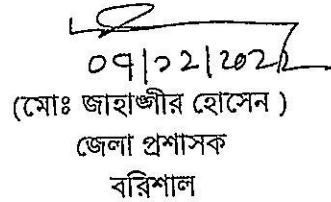 ০৭|১২|২০২২
(মোঃ জাহাঙ্গীর হোসেন )
জেলা প্রশাসক
বরিশাল